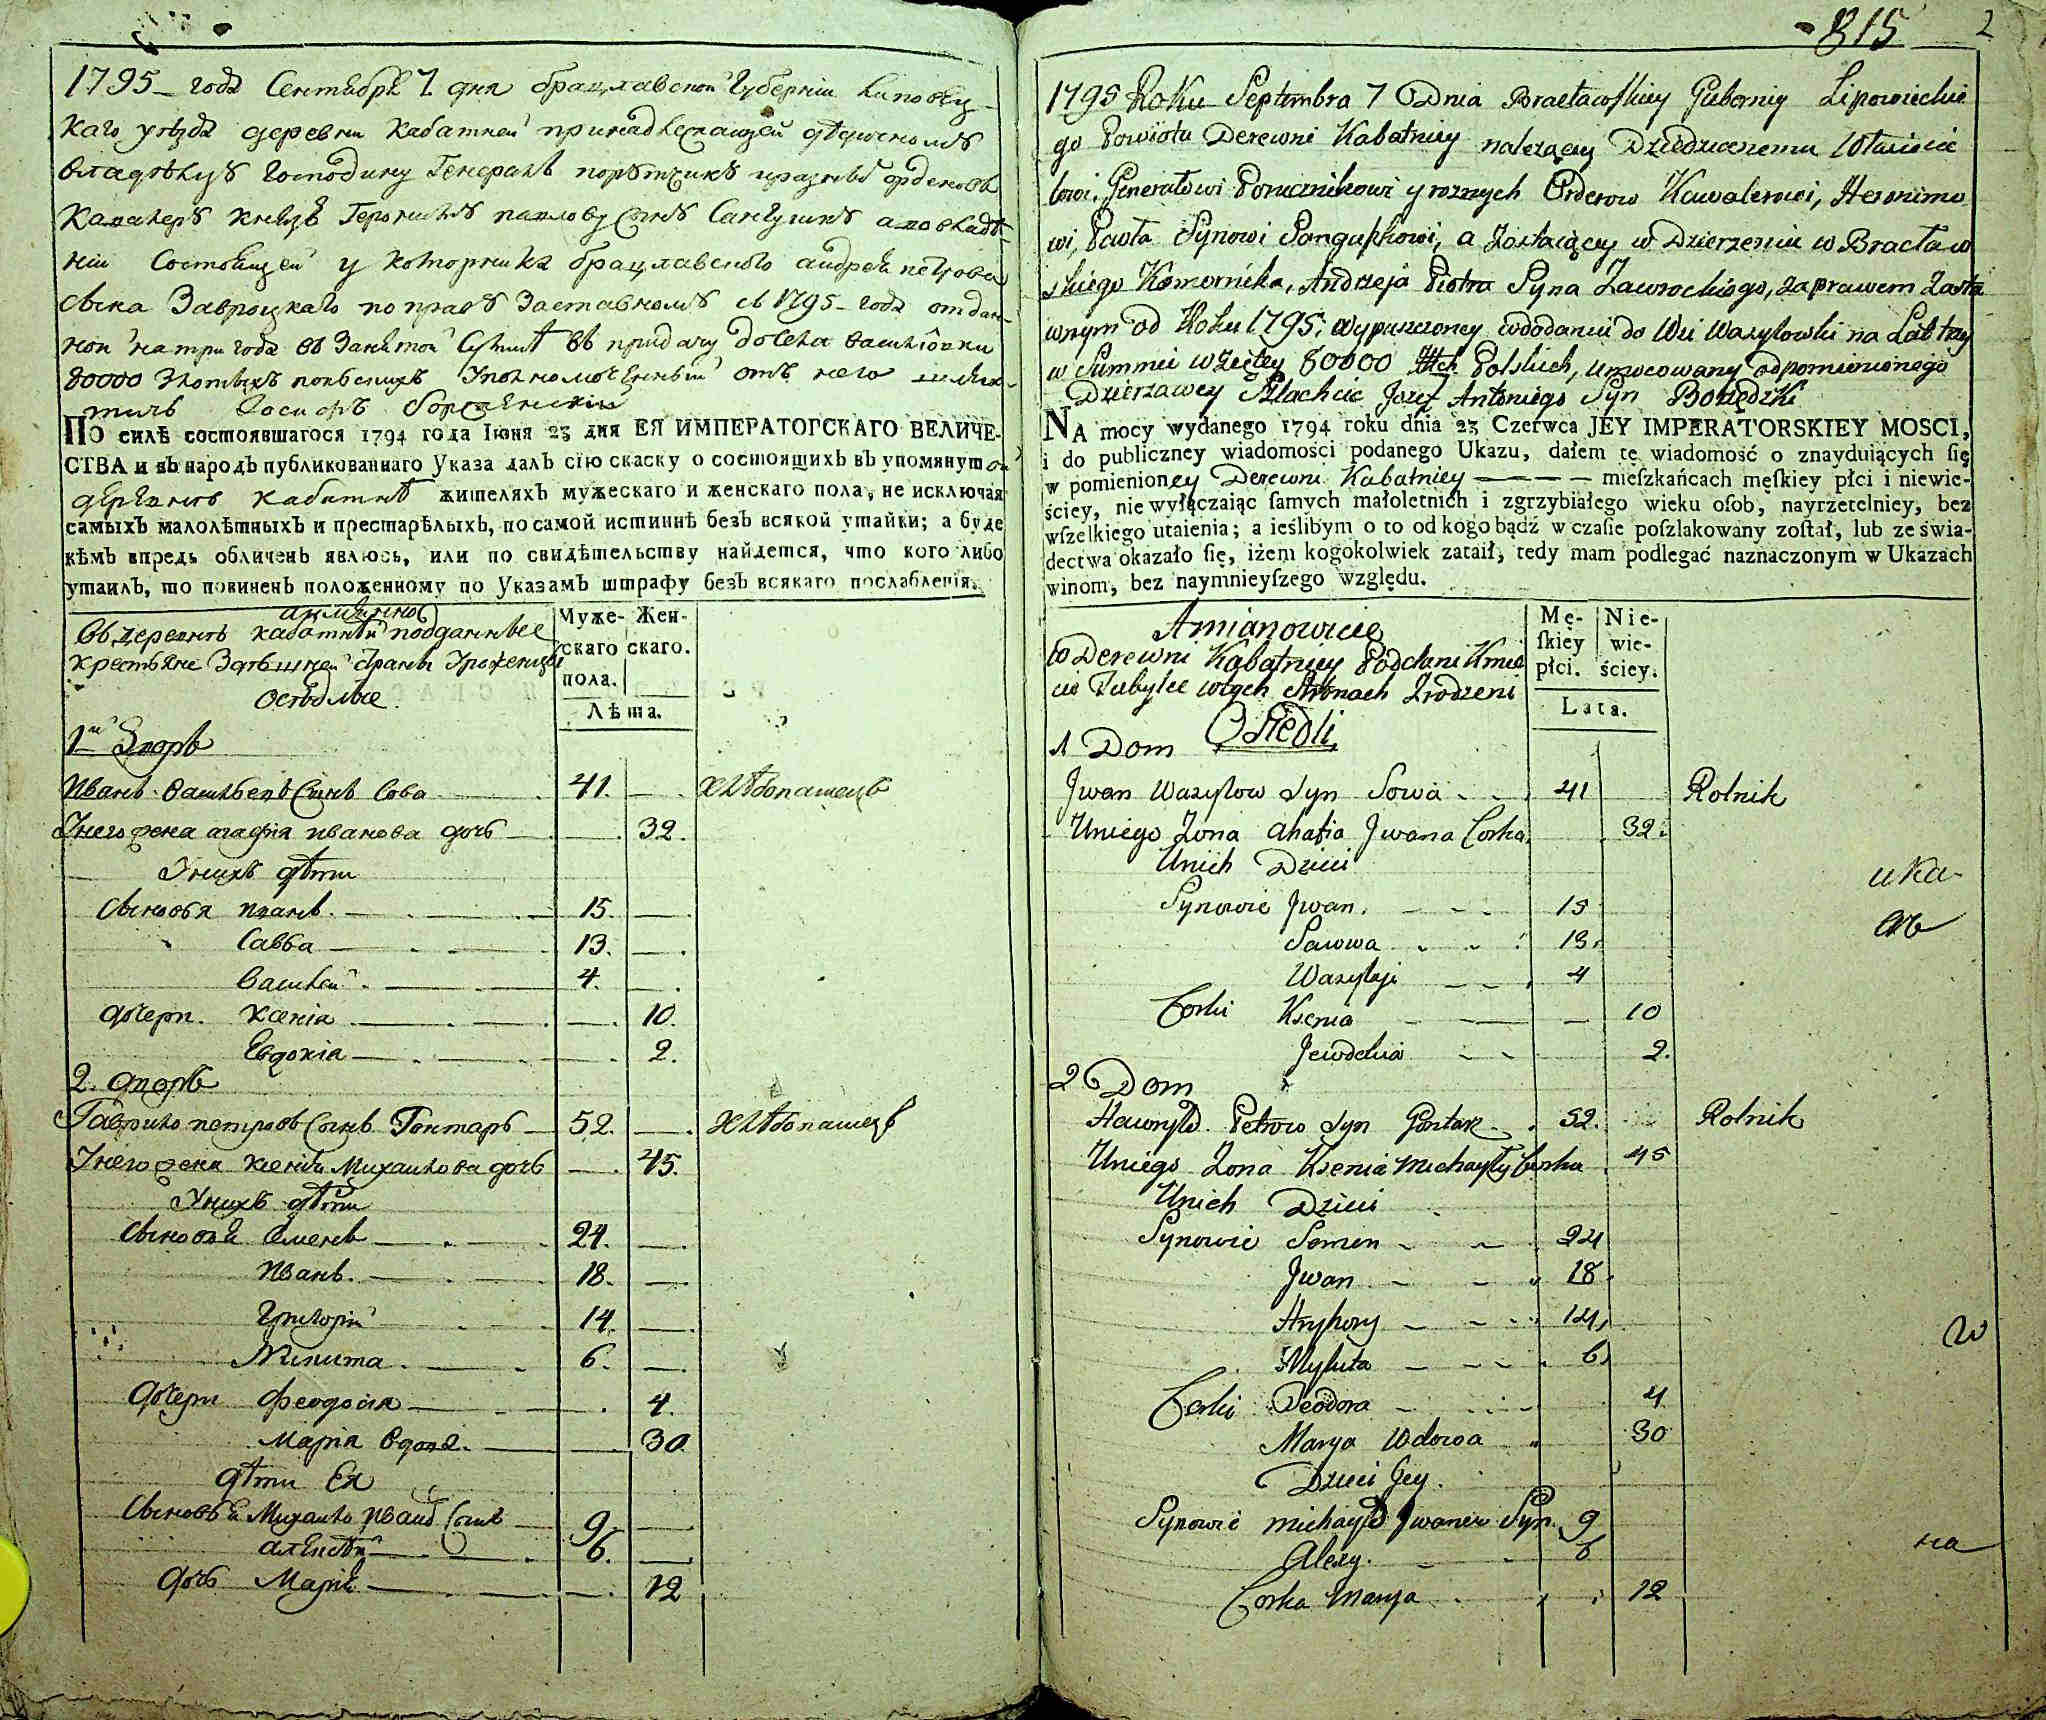 1795 года Сентября 7 дня Брацлавской Губернiи Липовец-
каго уезда деревни Кабатней принадлежащей
владелцу Господину Генералъ порутчику и разныхъ орденовъ
Кавалеру Князю Герониму Павлову сыну Сангушке а по владе-
нiи Состоящей у коморника брацлавского андрея петрова
сына Завроцкаго по праву Заставному съ 1795 года отдан-
ной на три года въ Занятой Сумме въ придачу до села василiовки
80000 злотыхъ полскихъ Уполномоченный отъ него шлях-
тичъ
ПО силѣ состоявшагося 1794 года Iюня 23 дня ЕЯ ИМПЕРАТОРСКАГО ВЕЛИЧЕ-
СТВА и въ народъ публикованнаго Указа далъ сїю скаску о состоящихъ въ упомянутой
деревне кабатне жителяхъ мужескаго и женскаго пола, не исключая
самыхъ малолѣтныхъ и престарѣлыхъ, по самой истиннѣ безъ всякой утайки; а буде
кѣмъ впредь обличенъ явлюсь, или по свидѣтельству найдется, что кого либо
утаилъ, то повиненъ положенному по Указамъ штрафу безъ всякаго послабленїя.
а имянно
Въ деревне кабатней подданные
крестьяне Здешней страны Уроженцы
оседлые
Муже-
скаго
пола.
Жен-
скаго.
Лѣта.
1й Дворъ
Иванъ Васильевъ Сынъ Сова 41. хлѣбопашецъ
У него жена агафiя иванова дочь 32.
У нихъ дѣти
Сыновья иванъ 15.
Савва 13.
Василей 4.
дочери ксенiя 10.
Евдокiя 2.
2. дворъ
Гаврило петровъ Сынъ Гонтаръ 52. хлѣбопашецъ
У него жена ксенiя Михайлова дочь 45.
У нихъ дѣти
Сыновья Семенъ 24.
Иванъ 18.
Григорiй 14.
Микита 6.
дочери феодосiя 4.
Марiя вдова 30
дѣти Ея
Сыновья Михайло Иван Сынъ 9
алексѣй 6.
дочь Марiя 12
815 2
1795 Roku Septembra 7 Dnia Bracławskiey Gubernij Lipowieckie
go Powiatu Derewni Kabatniey należącey Dziedzicznemu Właścicie
lowi, Generałowi Porucznikowi y roznych Orderow Kawalerowi, Heronimo
wi, Pawła Synowi Sanguszkowi, a Zostaiącey w Dzierzeniu w Bracław
skiego Komornika, Andrzeja Piotra Syna Zawrockiego, za prawem Zasta
wnym od Roku 1795. wypuszczoney w dodaniu do Wsi Wasylowki na Lat trzy
w Summie wzietey 80000 Złłch Polskich, umocowany od pomienionego
Dzierzawcy Szlachcic Jozef Antoniego Syn
NA mocy wydanego 1794 roku dnia 23 Czerwca JEY IMPERATORSKIEY MOSCI,
i do publiczney wiadomości podanego Ukazu, dałem tę wiadomość o znayduiących się
w pomienioney Derewni Kabatniey — — — — mieſzkańcach męſkiey płci i niewie-
ściey, nie wyłączaiąc ſamych małoletnich i zgrzybiałego wieku oſob, nayrzetelniey, bez
wſzelkiego utaienia; a ieślibym o to od kogo bądź w czaſie poſzlakowany zoſtał, lub ze świa-
dectwa okazało się, iżem kogokolwiek zataił, tedy mam podlegać naznaczonym w Ukazach
winom, bez naymnieyſzego względu.
Amianowicie
W Derewni Kabatniey Poddani Kmie
cie Tubylce w tych Stronach Zrodzeni
Osiedli
Mę-
ſkiey
płci.
Nie-
wie-
ściey.
Lata.
1 Dom
Jwan Wasylow Syn Sowa 41 Rolnik
Uniego Zona Ahafia Jwana Corka 32.
Unich Dzieci
Synowie Jwan. 15
Sawwa 13.
Wasylyi 4
Corki Ksenia 10
Jewdokia 2.
2 Dom
Hawryło Petrow Syn Gontar 52. Rolnik
Uniego Zona Ksenia Michayły Corka 45
Unich Dzieci
Synowie Semen 24
Jwan 18
Hryhory 14
Mykita 6
Corki Teodora 4
Marya Wdowa 30
Dzieci Jey.
Synowie Michayło Jwanow Syn. 9
Alexy. 6
Corka Marya 12
ика
на